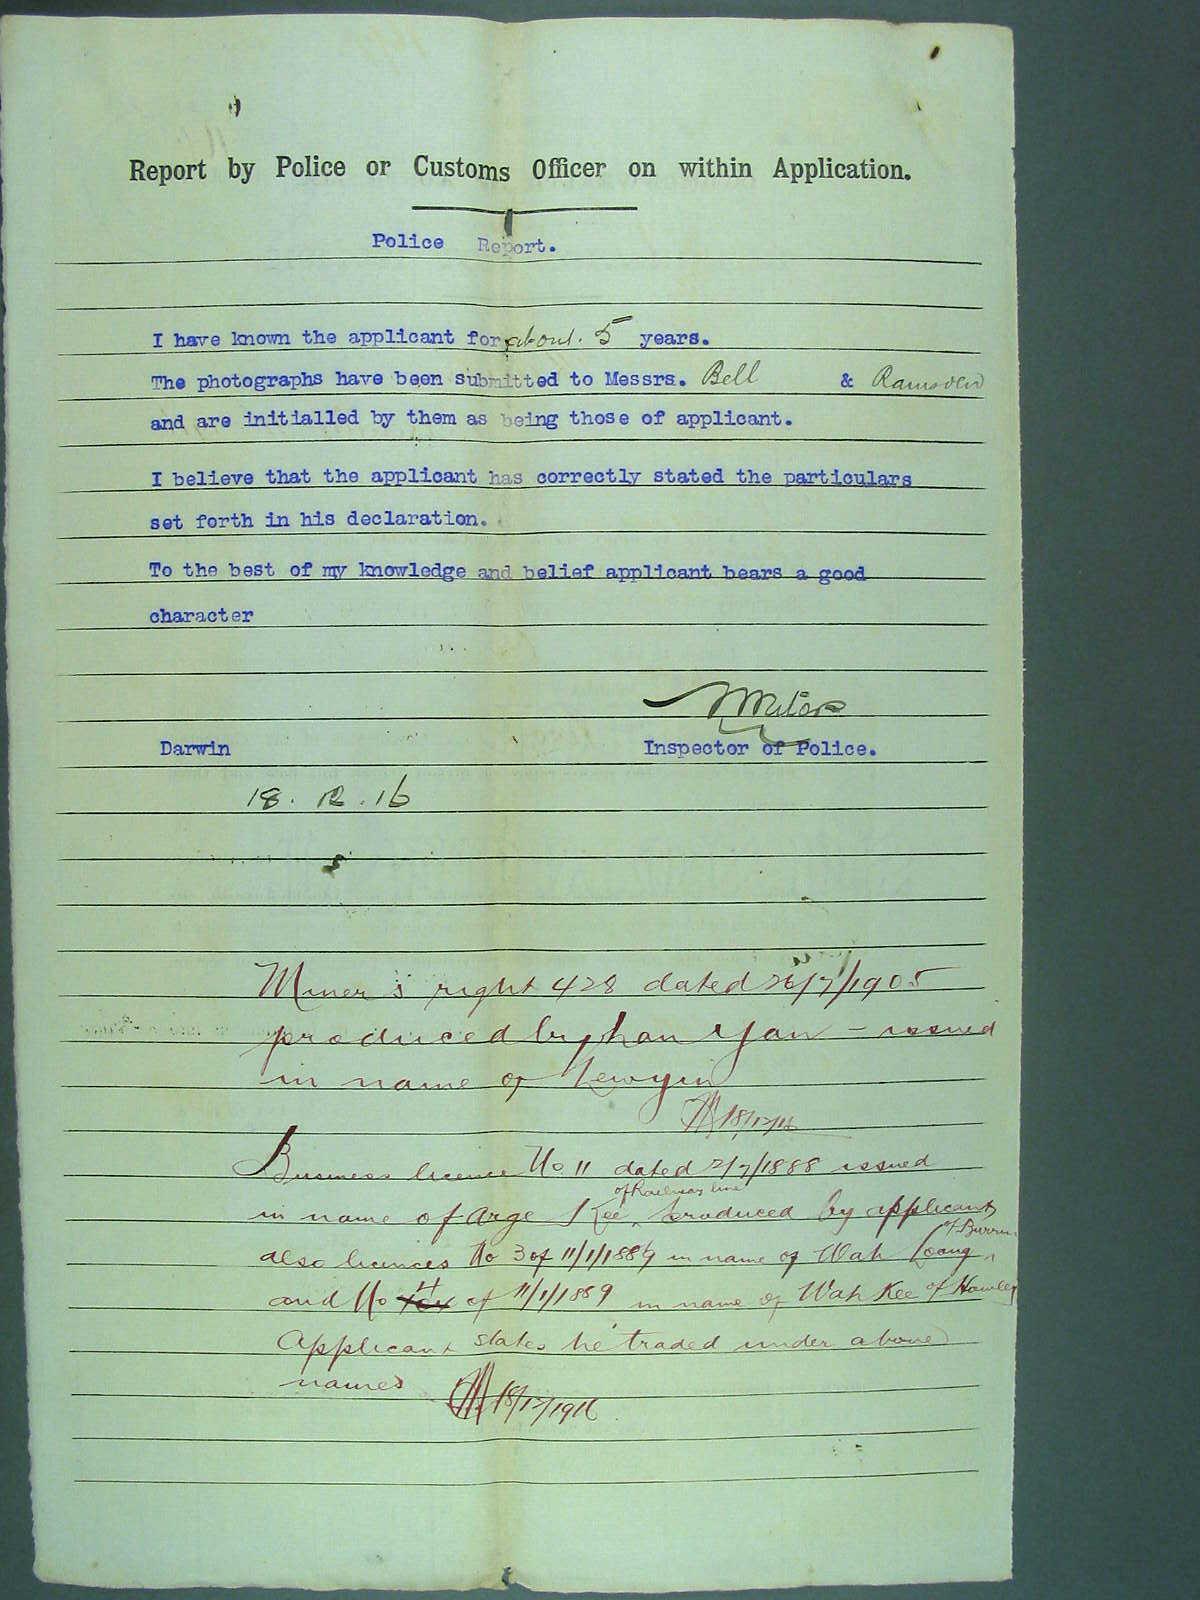 Report by Police or Customs Officer on within Application.
Police Report.
I have known the applicant for about. 5 years.
The photographs have been submitted to Messrs. Bell & Ramsden
and are initialled by them as being those of applicant.
I believe that the applicant has correctly stated the particulars
set forth in his declaration.
To the best of my knowledge and belief applicant bears a good
character
Darwin
Inspector of Police.
18. 12. 16
Miner's right 428 dated 26/7/1905
produced by han Yan - issued
in name of
18/12/16
Business licence No 11 dated 2/7/1888 issued
of Railway line
in name of Arge Kee, produced by applicant
also licences No 3 of 11/1/1889 in name of Wah Loong
and No 4 of 11/1/1889 in name of Wah Kee of Howley
Applicant states he traded under above
names
18/12/1916